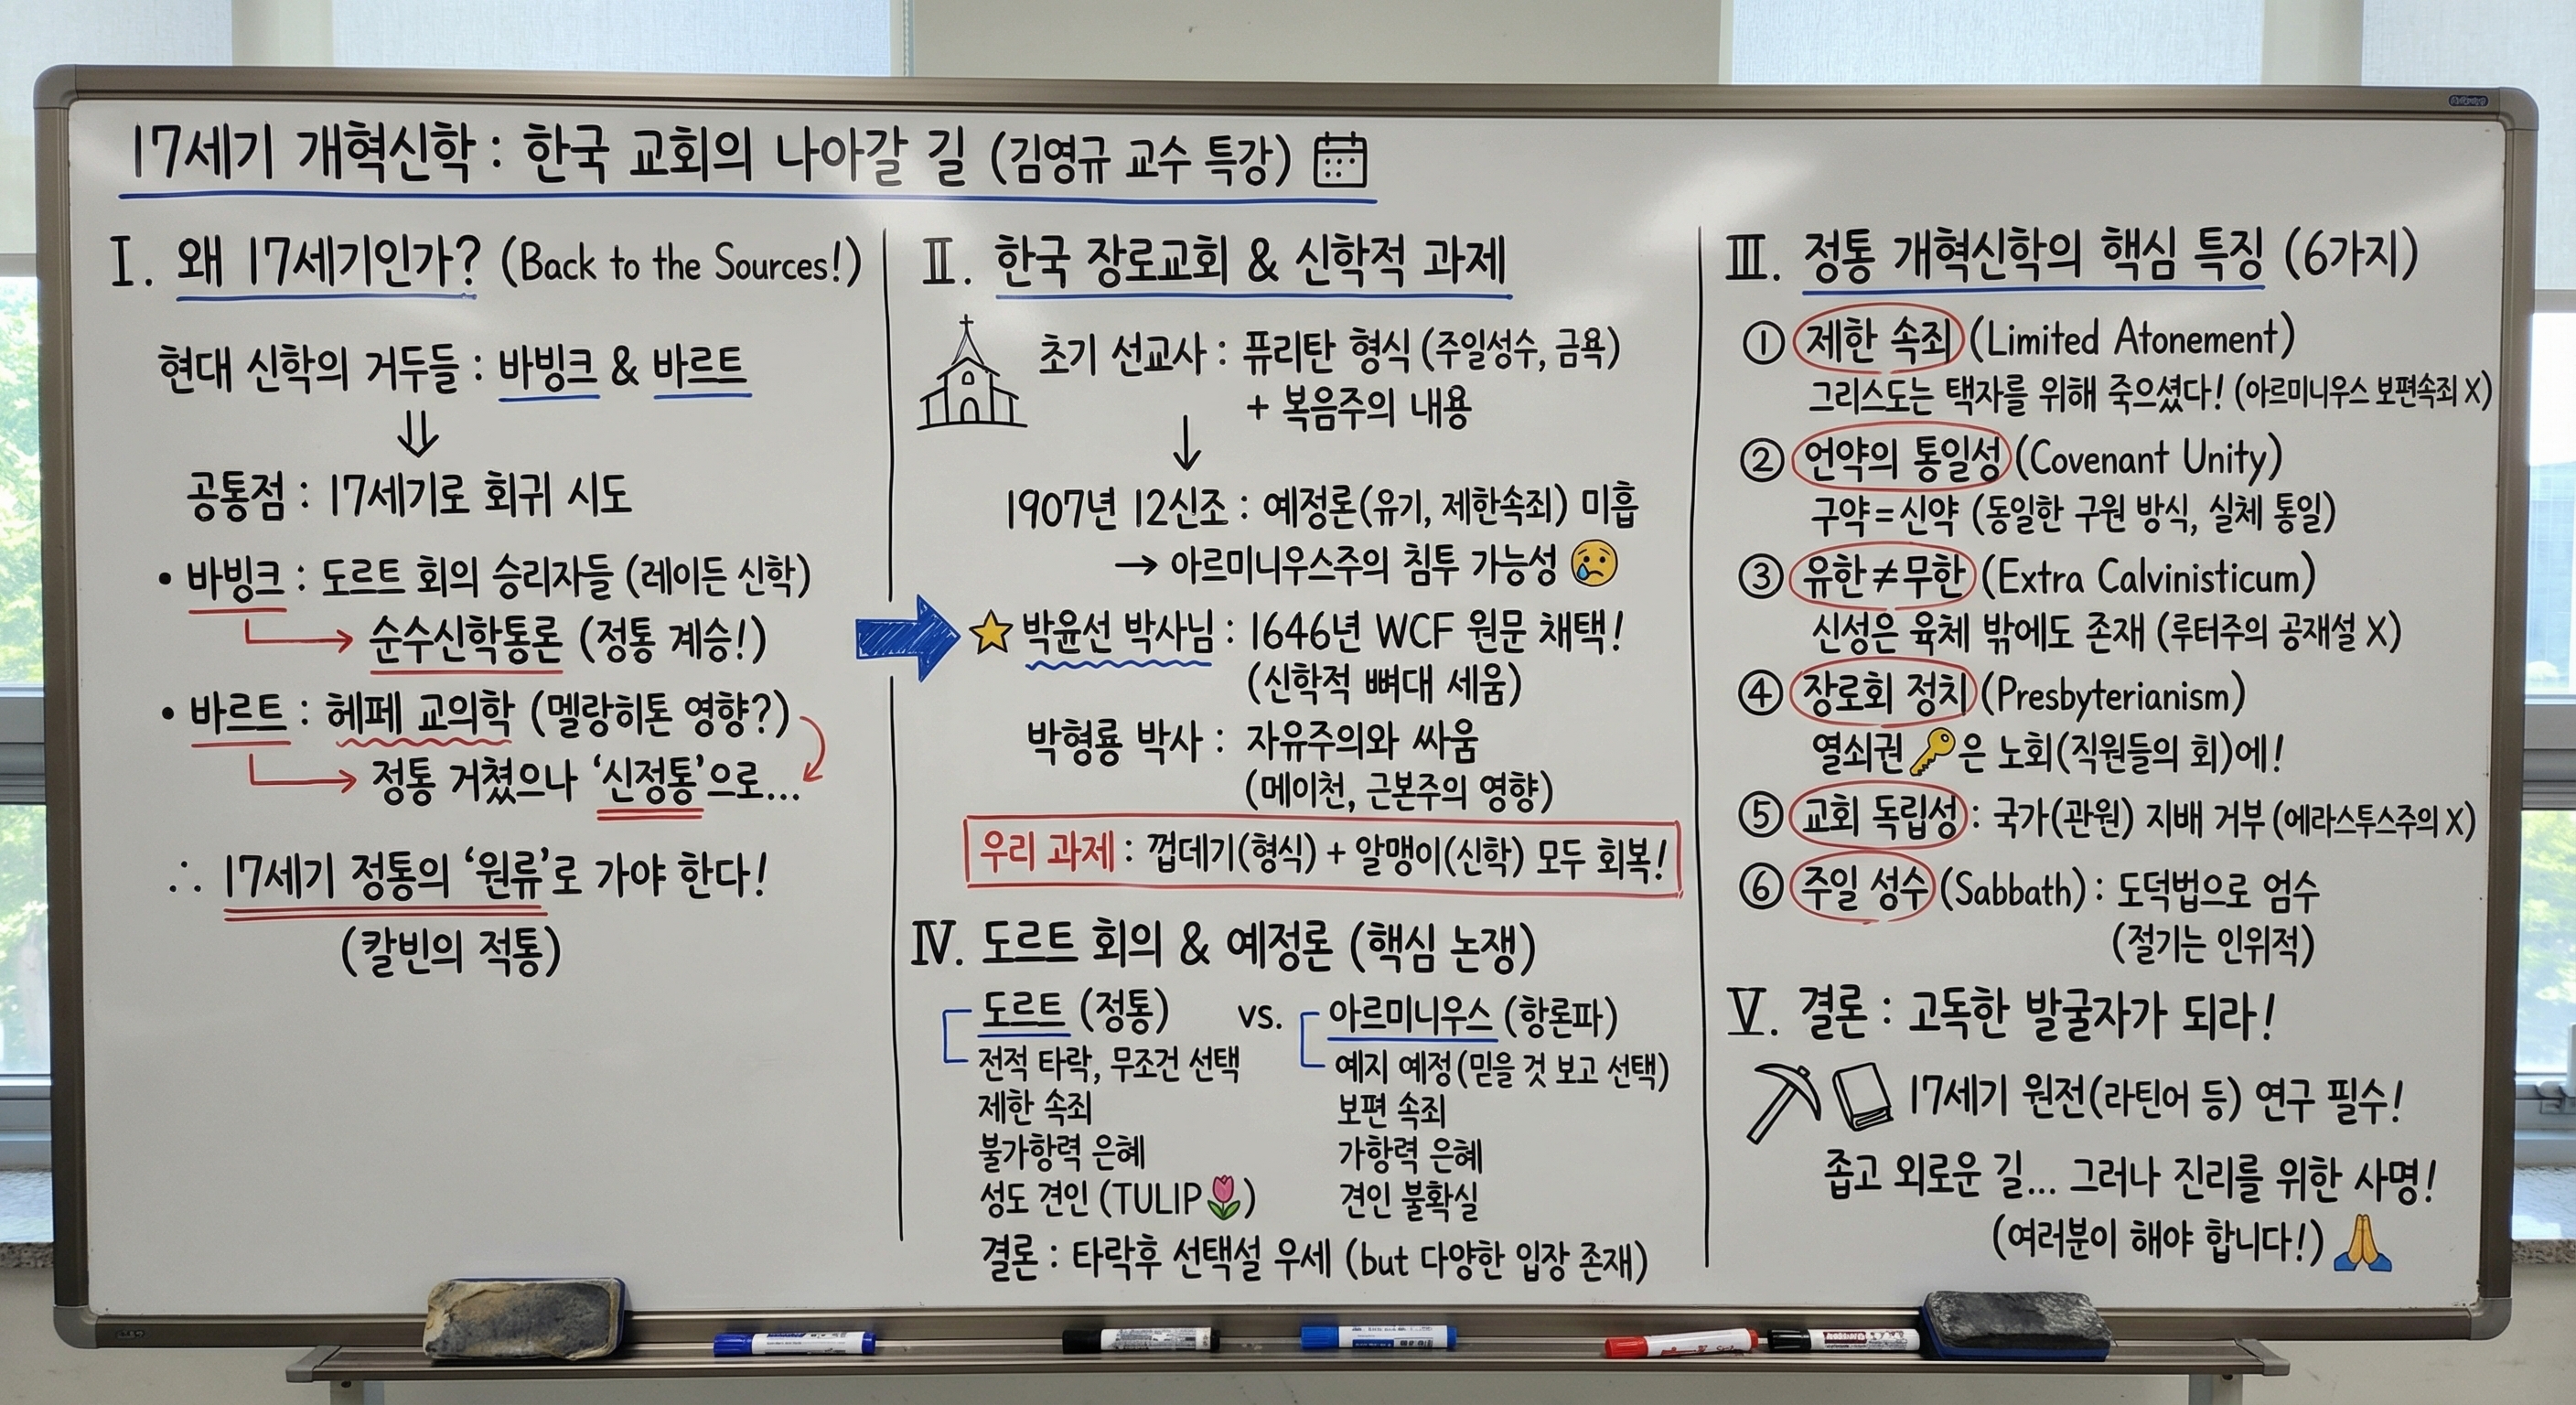 17세기 개혁신학 : 한국 교회의 나아갈 길 (김영규 교수 특강)
I. 왜 17세기인가? (Back to the Sources!)
현대 신학의 거두들 : 바빙크 & 바르트
⇓
공통점 : 17세기로 회귀 시도
• 바빙크 : 도르트 회의 승리자들 (레이든 신학)
순수신학통론 (정통 계승!)
• 바르트 : 헤페 교의학 (멜랑히톤 영향?)
정통 거쳤으나 ‘신정통’으로...
∴ 17세기 정통의 ‘원류’로 가야 한다!
(칼빈의 적통)
II. 한국 장로교회 & 신학적 과제
초기 선교사 : 퓨리탄 형식 (주일성수, 금욕)
+ 복음주의 내용
↓
1907년 12신조 : 예정론(유기, 제한속죄) 미흡
→ 아르미니우스주의 침투 가능성 😢
⭐ 박윤선 박사님 : 1646년 WCF 원문 채택!
(신학적 뼈대 세움)
박형룡 박사 : 자유주의와 싸움
(메이천, 근본주의 영향)
우리 과제 : 껍데기(형식) + 알맹이(신학) 모두 회복!
IV. 도르트 회의 & 예정론 (핵심 논쟁)
도르트 (정통) vs. 아르미니우스 (항론파)
전적 타락, 무조건 선택
제한 속죄
불가항력 은혜
성도 견인 (TULIP🌷)
예지 예정(믿을 것 보고 선택)
보편 속죄
가항력 은혜
견인 불확실
결론 : 타락후 선택설 우세 (but 다양한 입장 존재)
III. 정통 개혁신학의 핵심 특징 (6가지)
① 제한 속죄 (Limited Atonement)
그리스도는 택자를 위해 죽으셨다! (아르미니우스 보편속죄 X)
② 언약의 통일성 (Covenant Unity)
구약=신약 (동일한 구원 방식, 실체 통일)
③ 유한≠무한 (Extra Calvinisticum)
신성은 육체 밖에도 존재 (루터주의 공재설 X)
④ 장로회 정치 (Presbyterianism)
열쇠권🔑은 노회(직원들의 회)에!
⑤ 교회 독립성 : 국가(관원) 지배 거부 (에라스투스주의 X)
⑥ 주일 성수 (Sabbath) : 도덕법으로 엄수
(절기는 인위적)
V. 결론 : 고독한 발굴자가 되라!
17세기 원전(라틴어 등) 연구 필수!
좁고 외로운 길... 그러나 진리를 위한 사명!
(여러분이 해야 합니다!) 🙏